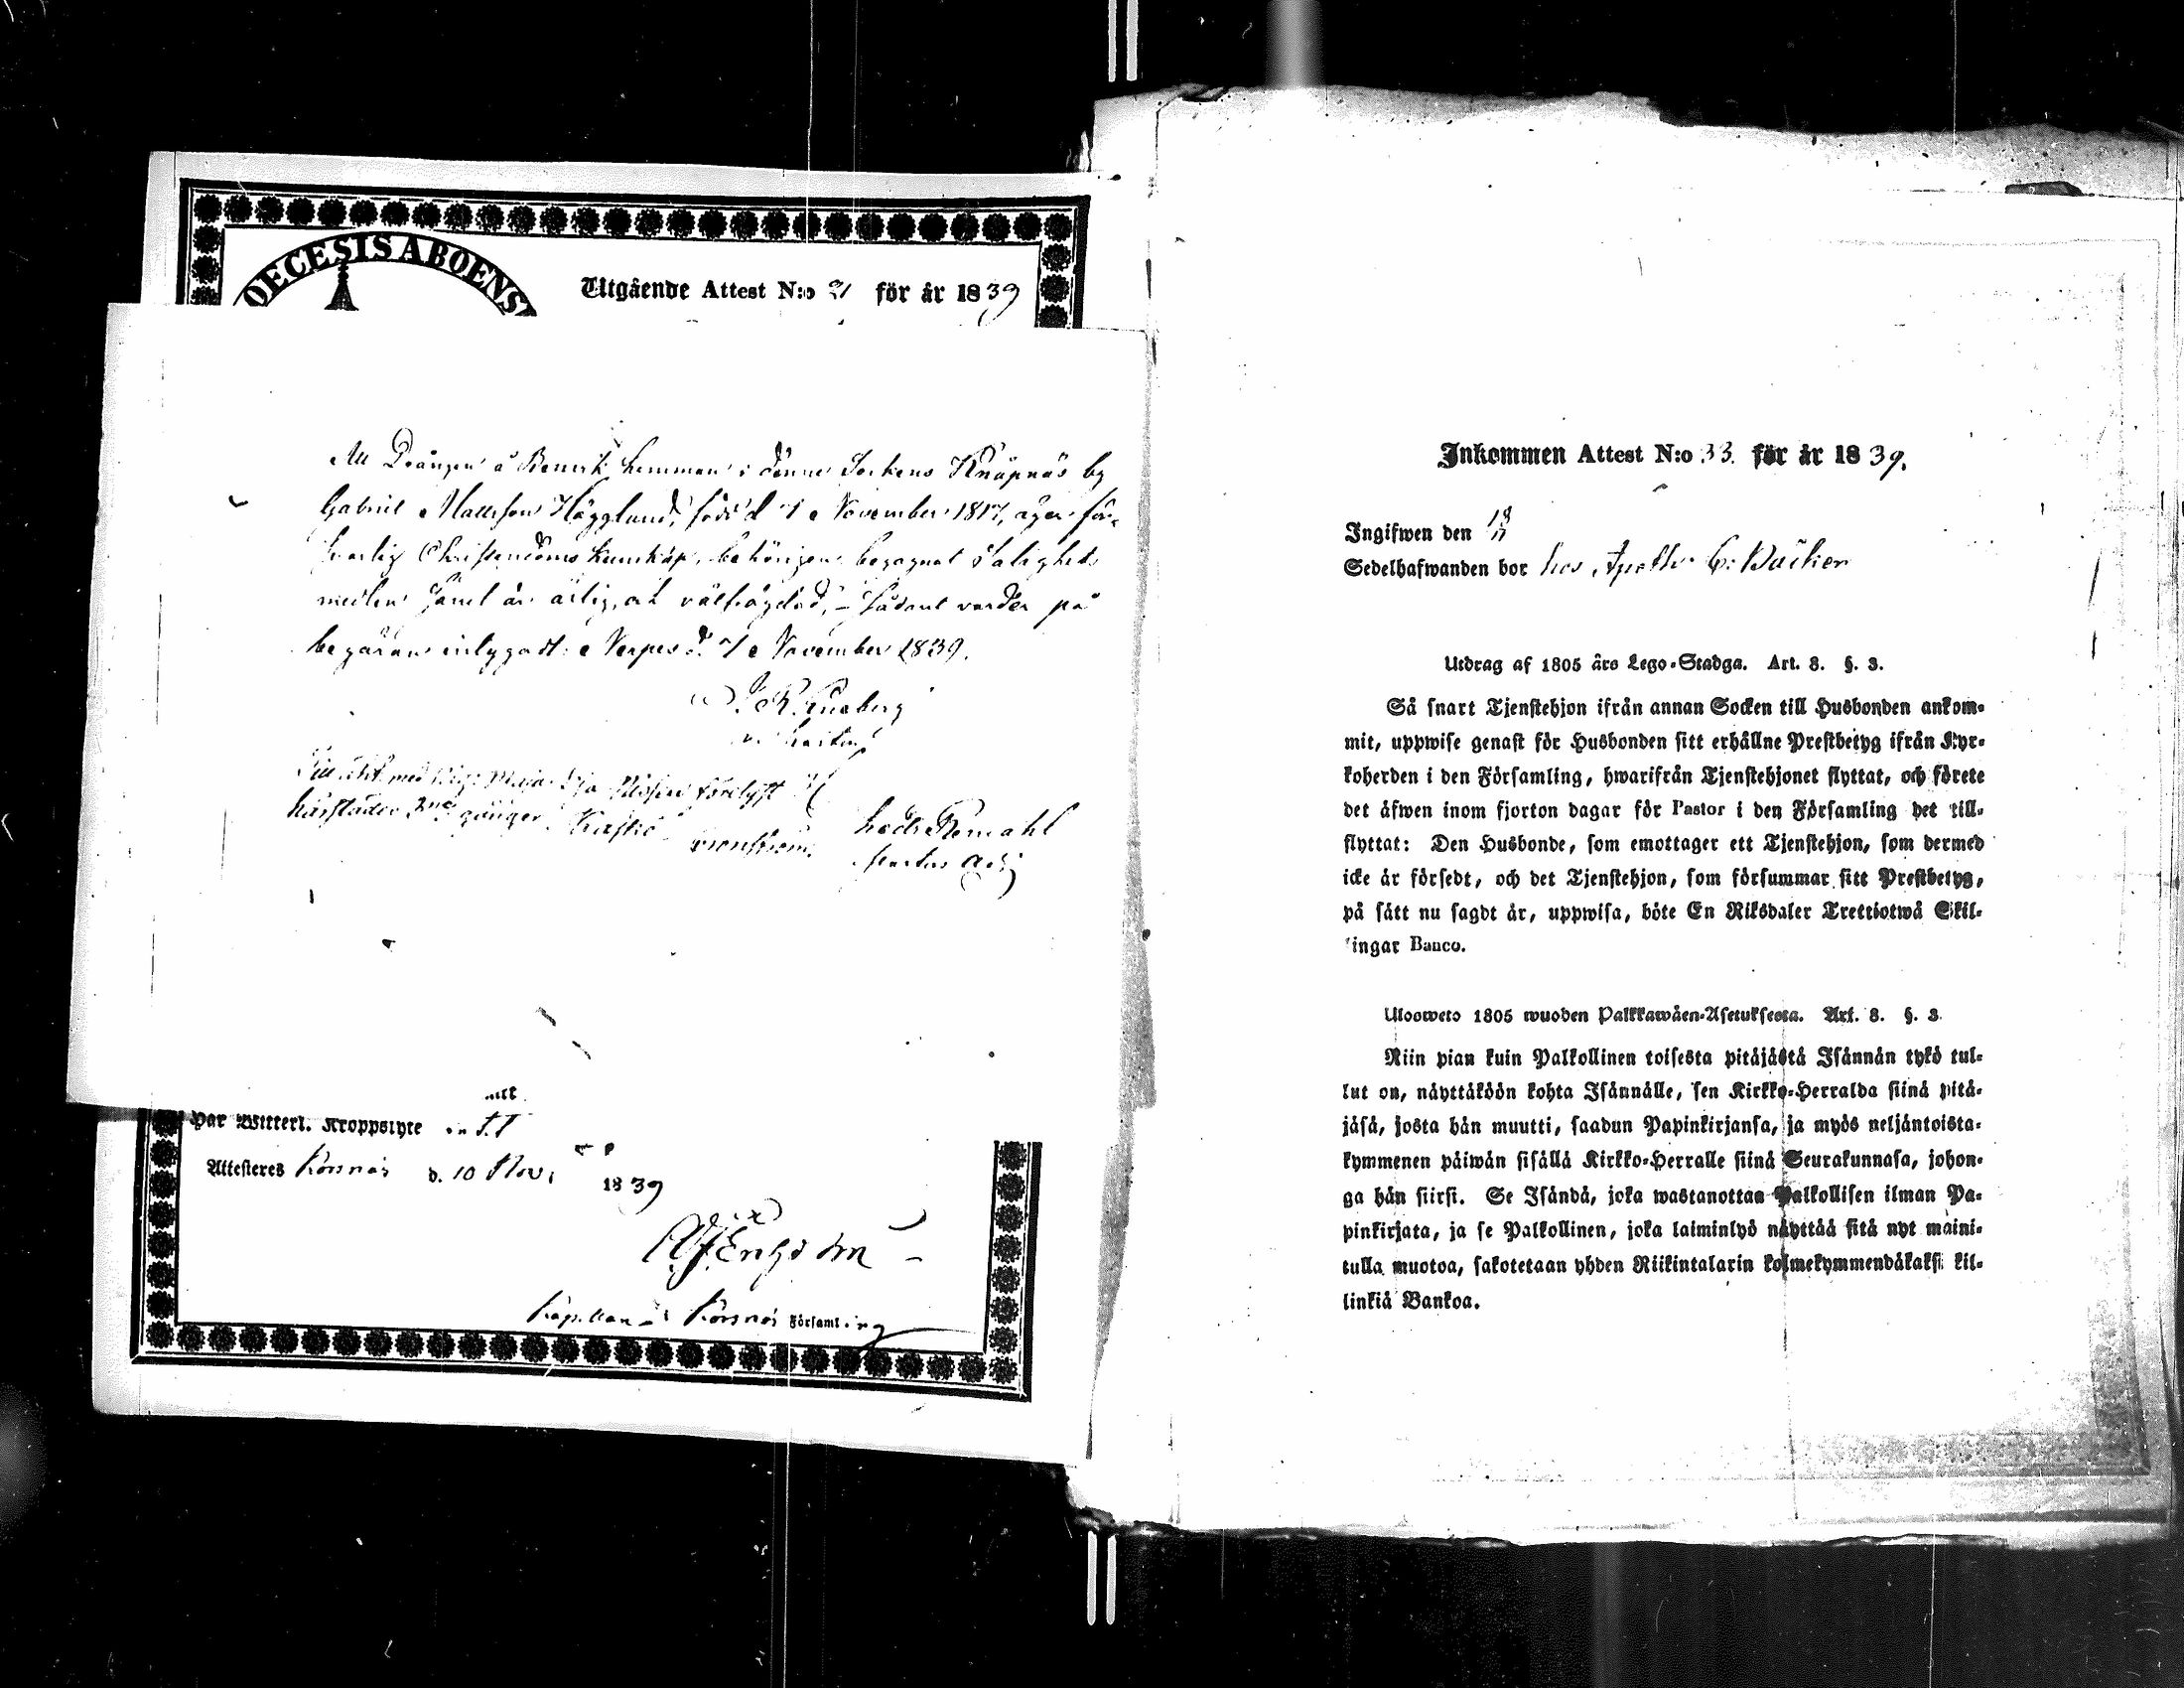 OECESIS ABOENS
Utgående Attest N:o 21 för år 1839
Att Drängen å Benvik hemman i denne Sockens Knåpnäs by
Gabriel Mattsson Högglund, född d 7 November 1817, äger för-
svarlig Christendoms kunskap, behörigen begagnat Salighets
medlen samt är ärlig, och välfrägdad, - Sådant varder på
begäran intygadt. Nerpes d. 7 November 1839.
härstädes 3ne gånger
Har Witterl. Kroppslyte
Attesteres Korsnäs d. 10 Nov. 1839
Capellan i Korsnäs Församling
Inkommen Attest N:o 33. för år 1839.
Ingifwen den
Sedelhafwanden bor hos
Utdrag af 1805 års Lego-Stadga. Art. 8. §. 3.
Så snart Tjenstehjon ifrån annan Socken till Husbonden ankom-
mit, uppwise genast för Husbonden sitt erhållne Prestbetyg ifrån Kyr-
koherden i den Församling, hwarifrån Tjenstehjonet flyttat, och förete
det äfwen inom fjorton dagar för Pastor i den Församling det till-
flyttat: Den Husbonde, som emottager ett Tjenstehjon, som dermed
icke är försedt, och det Tjenstehjon, som försummar sitt Prestbetyg,
på sätt nu sagdt är, uppwisa, böte En Riksdaler Trettiotwå Skil-
lingar Banco.
Ulosweto 1805 wuoden Palkkawäen-Asetuksesta. Art. 8. §. 3.
Niin pian kuin Palkollinen toisesta pitäjästä Isännän tykö tul-
lut on, näyttäköön kohta Isännälle, sen Kirkko-Herralda siinä pitä-
jäsä, josta hän muutti, saadun Papinkirjansa, ja myös neljäntoista-
kymmenen päiwän sisällä Kirkko-Herralle siinä Seurakunnasa, johon-
ga hän siirsi. Se Isändä, joka wastanottaa Palkollisen ilman Pa-
pinkirjata, ja se Palkollinen, joka laiminlyö näyttää sitä nyt maini-
tulla muotoa, sakotetaan yhden Riikintalarin kolmekymmendäkaksi kil-
linkiä Bankoa.